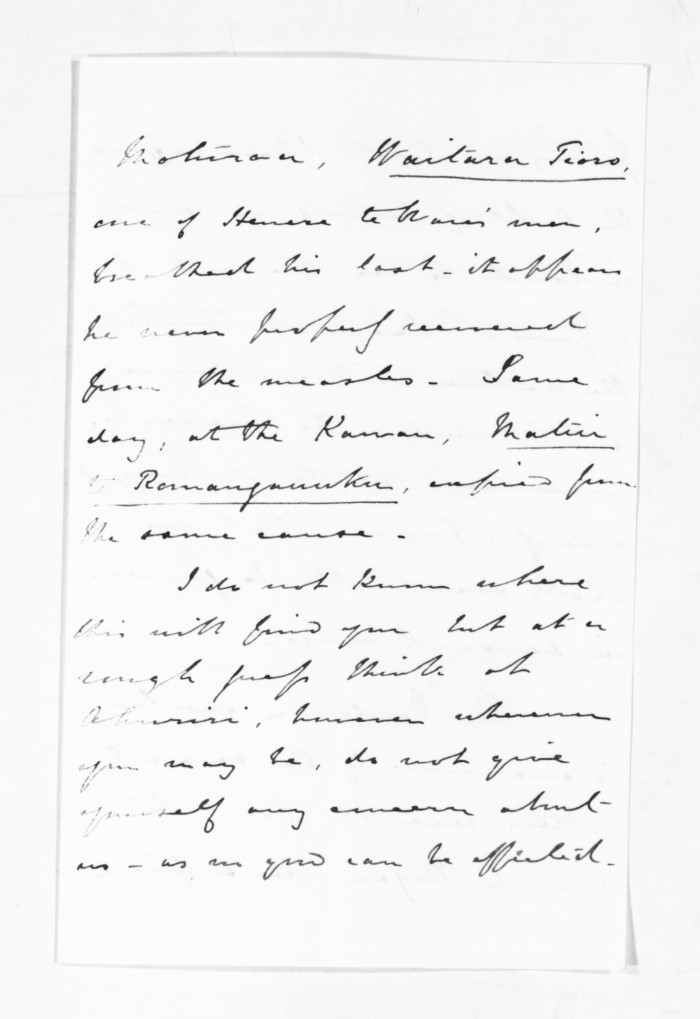 Moturoa, Waitara Tioro,
one of Henere te Ware's men,
breathed his last - it appears
he never properly recovered
from the measles - Same
day, at the Kawau, Matiu
te Romanganuku, expired from
the same cause -
I do not know where
this will find you but at a
rough guess think at
Ahuriri, however wherever
you may be, do not give
yourself any concern about
us - as no good can be effected -